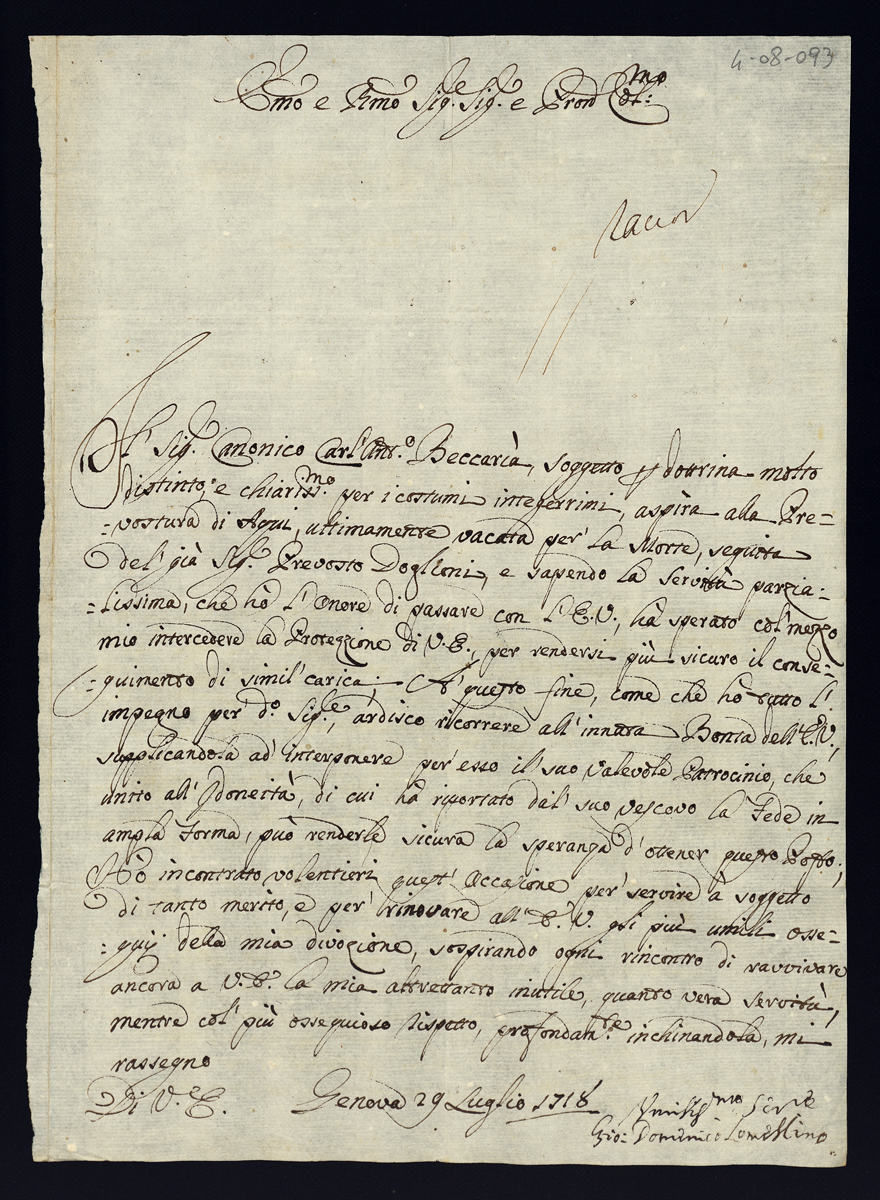 4-08-093
Emo e Rmo Sig.e Sig.e e Pron Col:mo
Il Sig.e Canonico Carl'Ant.o Beccaria, soggetto p dottrina molto
distinto, e chiariss.mo per i costumi integerrimi, aspira alla Pre=
=vostura di Aqui, ultimamente vacata per la Morte, seguita
del già Sig.e Prevosto Doglioni, e sapendo la servitù parzia=
=lissima, che hò l'Onore di passare con l'E.V., hà sperato col' mezzo
mio intercedere la Protezzione di V.E., per rendersi più sicuro il conse=
=guimento di simil' carica; A' questo fine, come che hò tutto l'
impegno per d.o Sig.re, ardisco ricorrere all'innata Bontà dell'E.V.,
supplicandola ad' interponere per esso il' suo valevole Patrocinio, che
unito all'Idoneità, di cui hà riportato dal' suo vescovo la Fede in
ampla Forma, può renderle sicura la speranza d'ottener questo Posto;
Hò incontrato volentieri quest' Occasione per servire à soggetto
di tanto merito, e per' rinovare all'E.V. gli più umili osse=
=quij della mia divozione, sospirando ogni rincontro di ravvivare
ancora a V.E. la mia altrettanto inutile, quanto vera servitù,
mentre col' più ossequioso rispetto, profondam.te inchinandola, mi
rassegno
Di V.e E. Genova 29 Luglio 1718
Gio: Domenico Lomellino